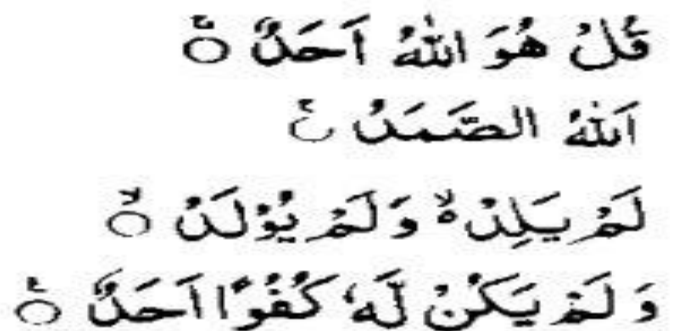 قُلْ هُوَ اللّٰهُ اَحَدٌ ۚ
اَللّٰهُ الصَّمَدُ ۚ
لَمْ يَلِدْ ۙ وَلَمْ يُوْلَدْ ۙ
وَلَمْ يَكُنْ لَّهٗ كُفُوًا اَحَدٌ ۚ